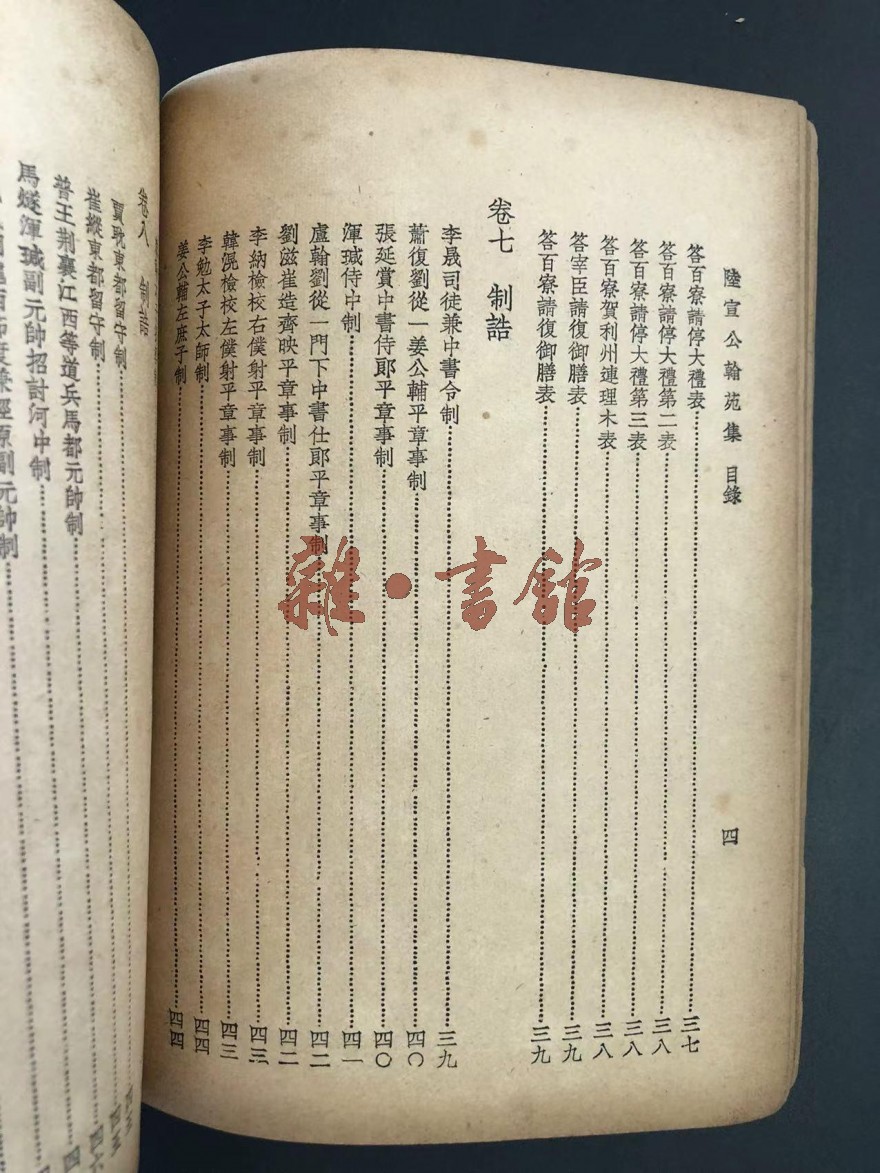 陸宣公翰苑集 目錄
四
答百寮請停大禮表 三七
答百寮請停大禮第二表 三八
答百寮請停大禮第三表 三八
答百寮賀利州連理木表 三八
答宰臣請復御膳表 三九
答百寮請復御膳表 三九
卷七 制誥
李晟司徒兼中書令制 三九
蕭復劉從一姜公輔平章事制 四〇
張延賞中書侍郎平章事制 四〇
渾瑊侍中制 四一
盧翰劉從一門下中書仕郎平章事制 四二
劉滋崔造齊映平章事制 四二
李納檢校右僕射平章事制 四三
韓滉檢校左僕射平章事制 四三
李勉太子太師制 四四
姜公輔左庶子制 四四
卷八 制誥
賈耽東都留守制
崔縱東都留守制
普王荆襄江西等道兵馬都元帥制
馬燧渾瑊副元帥招討河中制
雜·書館